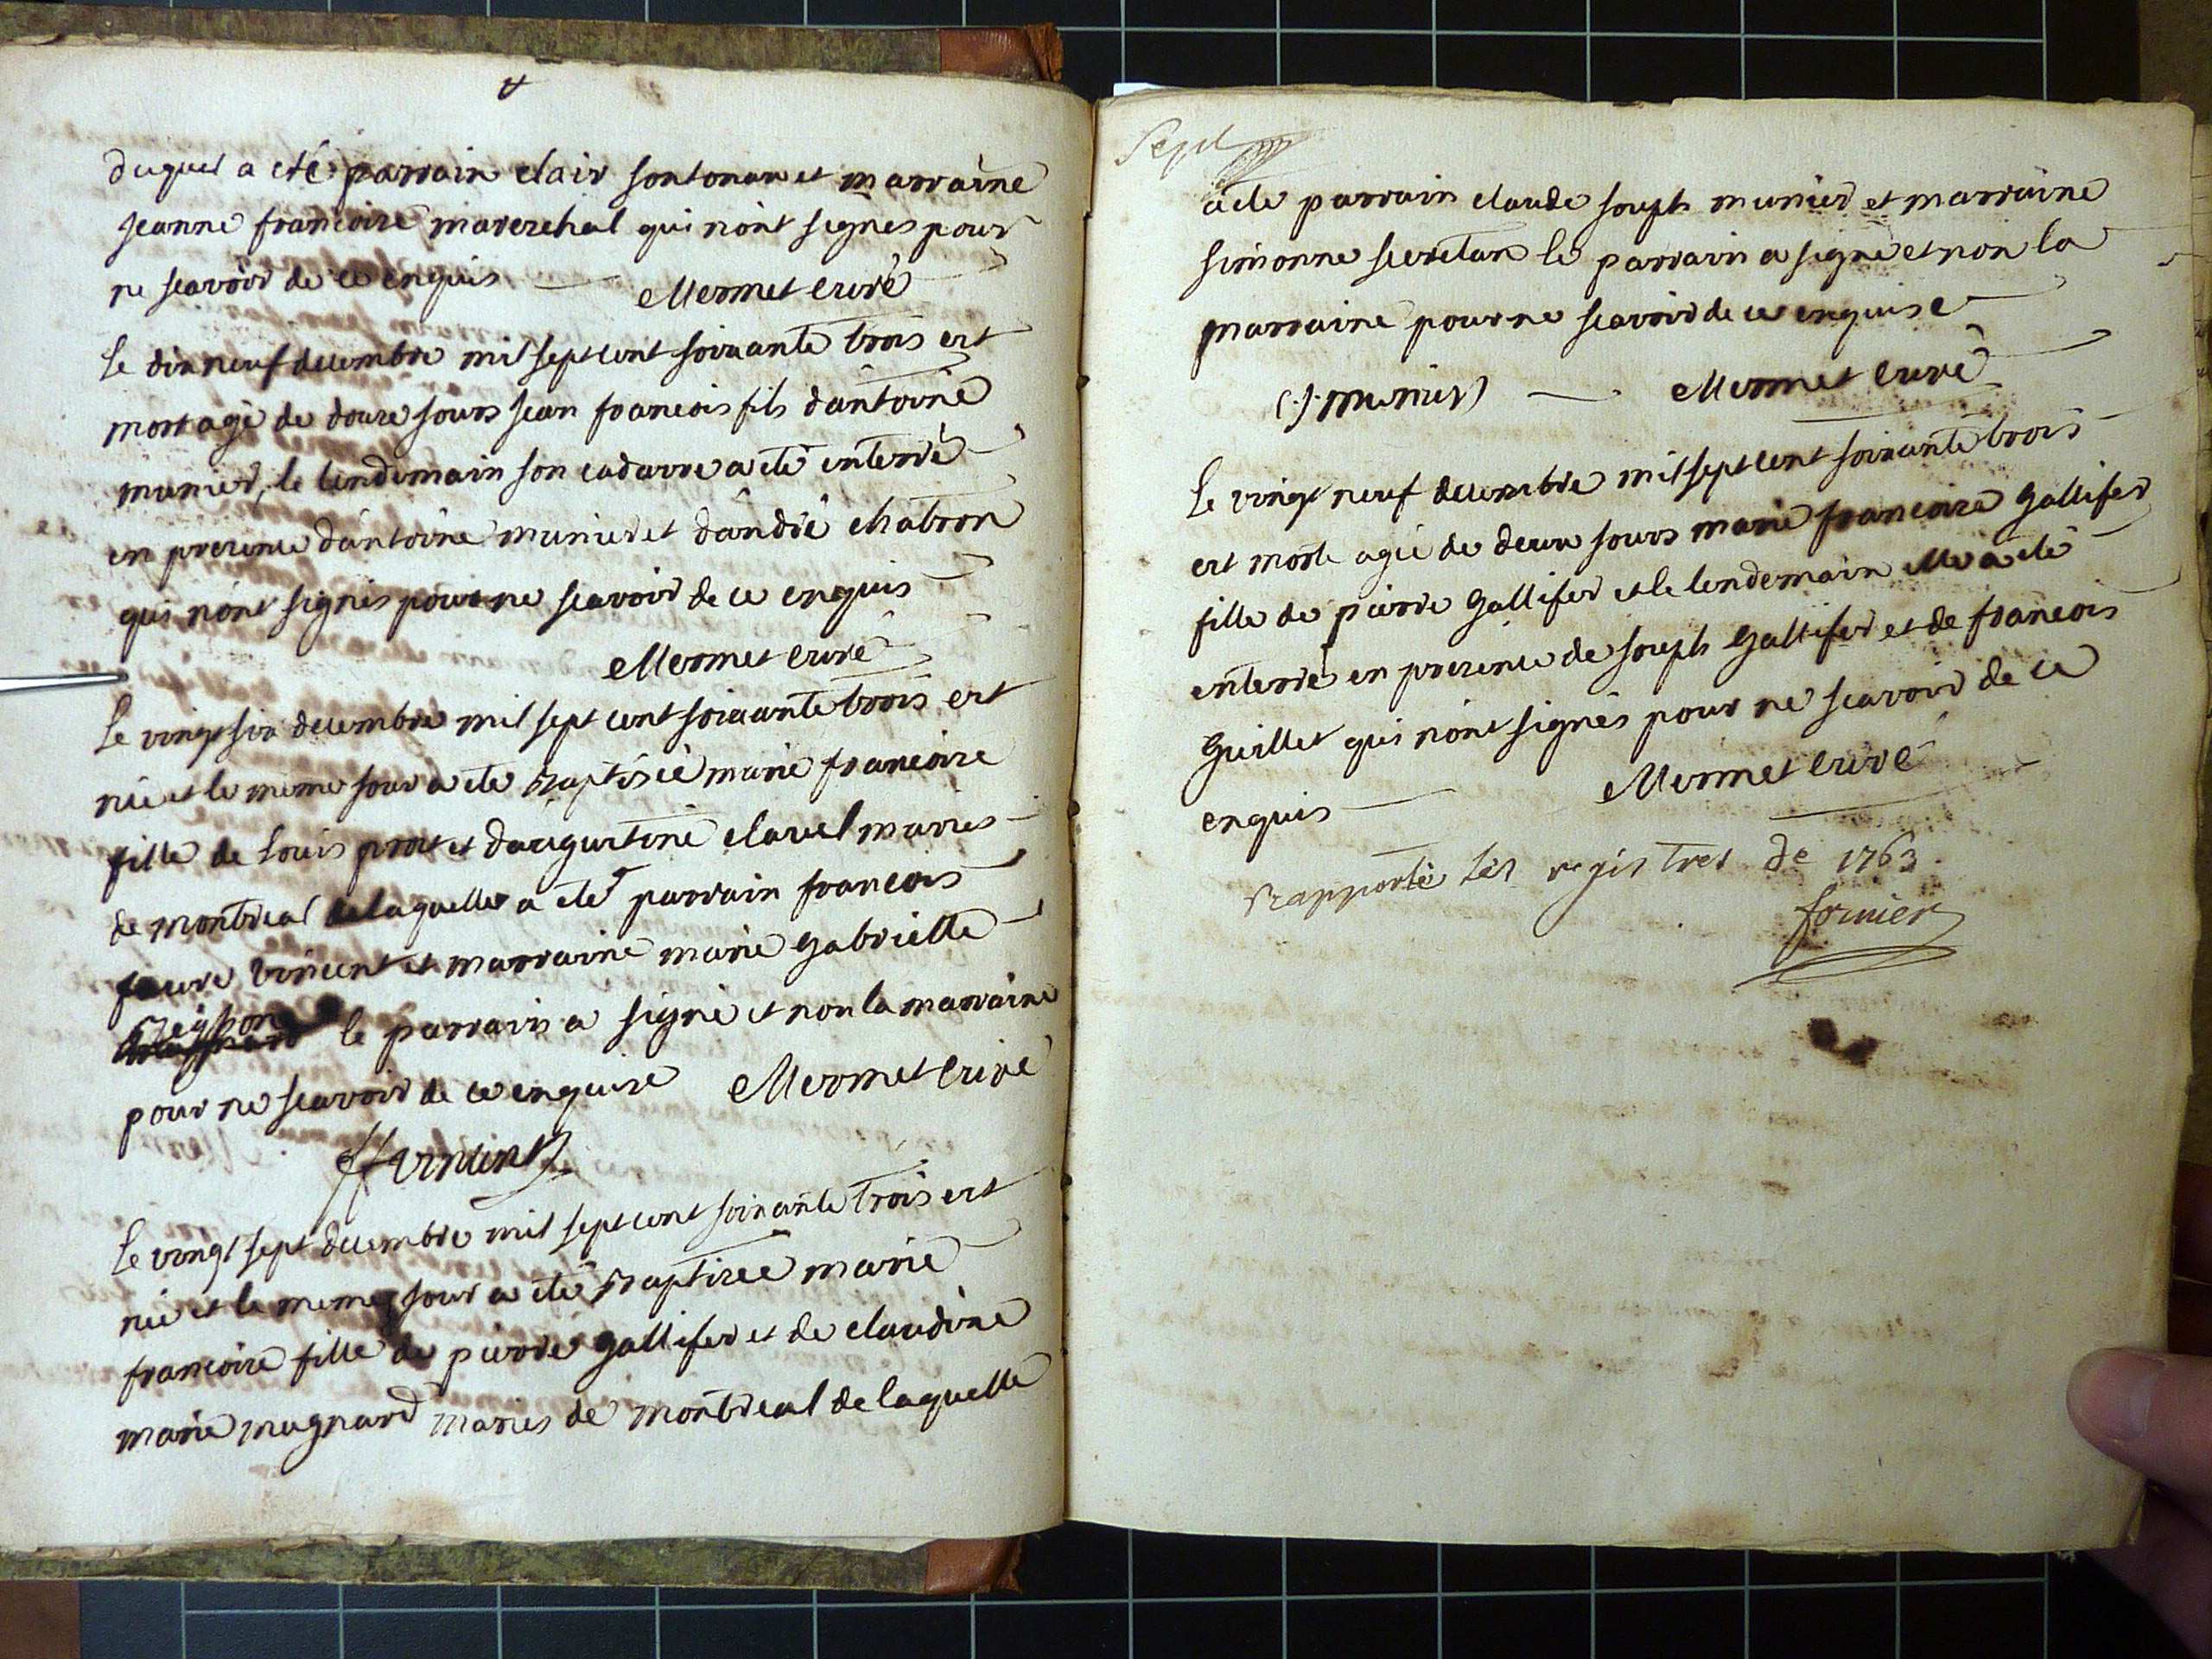 duquel a eté parrain clair fontanan et marraine
jeanne francoise marerchal qui n'ont signés pour
ne scavoir de ce enquis Mermet curé
le dix neuf decembre mil sept cent soixante trois est
mort agé de douze jours jean francois fils d'antoine
munier, le lendemain son cadavre a eté enterré
en presence d'antoine munier et d'andré chabron
qui n'ont signés pour ne scavoir de ce enquis
Mermet curé
le vingt six decembre mil sept cent soixante trois est
née et le meme jour a eté baptisée marie francoise
fille de louis prost et d'augustine clavel maries
de montreal de laquelle a eté parrain francois
vincent et marraine marie gabrielle
le parrain a signé et non la marraine
pour ne scavoir de ce enquise Mermet curé
le vingt sept decembre mil sept cent soixante trois est
née et le meme jour a eté baptisée marie
francoise fille de pierre gallifer et de claudine
marie mugnard maries de montreal de laquelle
Sept
a ete parrain claude joseph munier et marraine
simonne secretan le parrain a signé et non la
marraine pour ne scavoir de ce enquise
C.J. munier Mermet curé
le vingt neuf decembre mil sept cent soixante trois
est morte agée de deux jours marie francoise gallifer
fille de pierre gallifer et le lendemain elle a eté
enterré en presence de joseph gallifer et de francois
guillet qui n'ont signés pour ne scavoir de ce
enquis Mermet curé
rapporté les registres de 1763
fornier